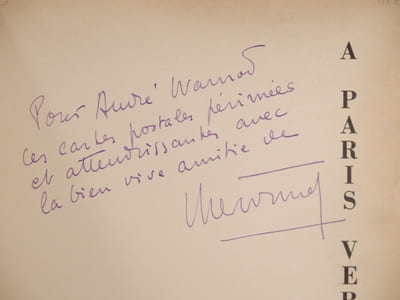 Pour André Warnod
ces cartes postales périmées
et attendrissantes avec
la bien vive amitié de
A
PARIS
VER